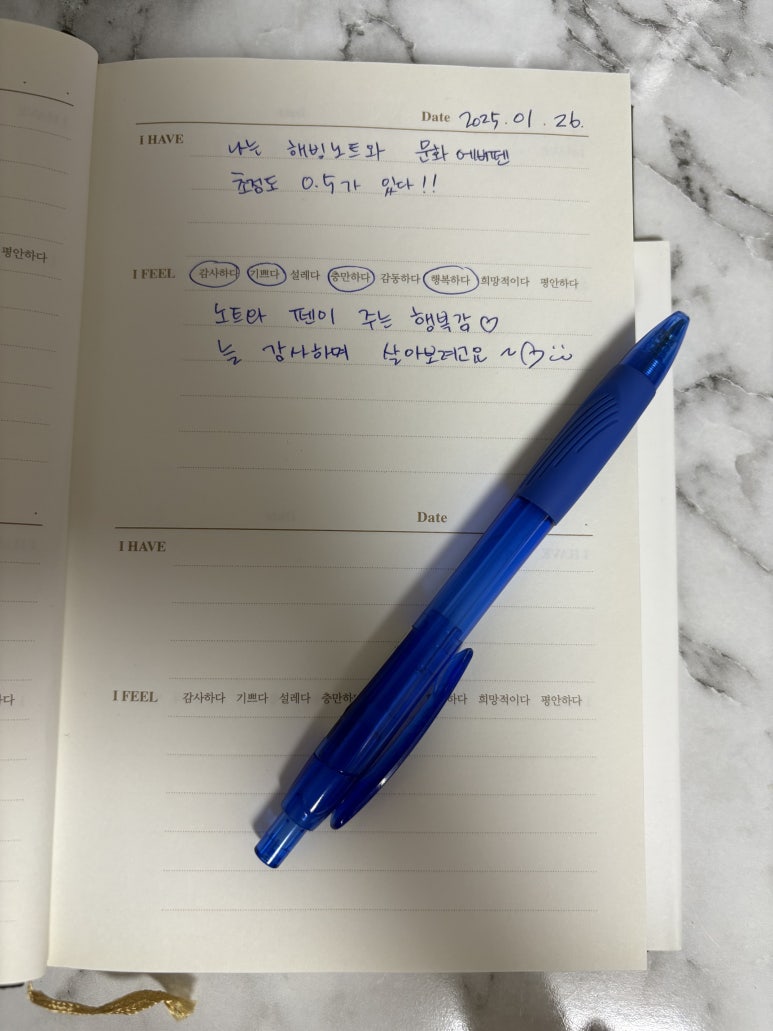 평안하다
Date 2025.01.26.
I HAVE
나는 해빙노트와 문화 에버펜
초정도 0.5가 있다!!
I FEEL 감사하다 기쁘다 설레다 충만하다 감동하다 행복하다 희망적이다 평안하다
노트와 펜이 주는 행복감♡
늘 감사하며 살아보려고요 ~
Date
I HAVE
I FEEL 감사하다 기쁘다 설레다 충만하 하다 희망적이다 평안하다